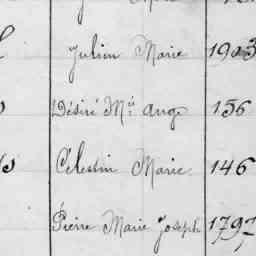 Julien Marie 1903
Désiré M.ie Ange 156
Célestin Marie 146
Pierre Marie Joseph 1797